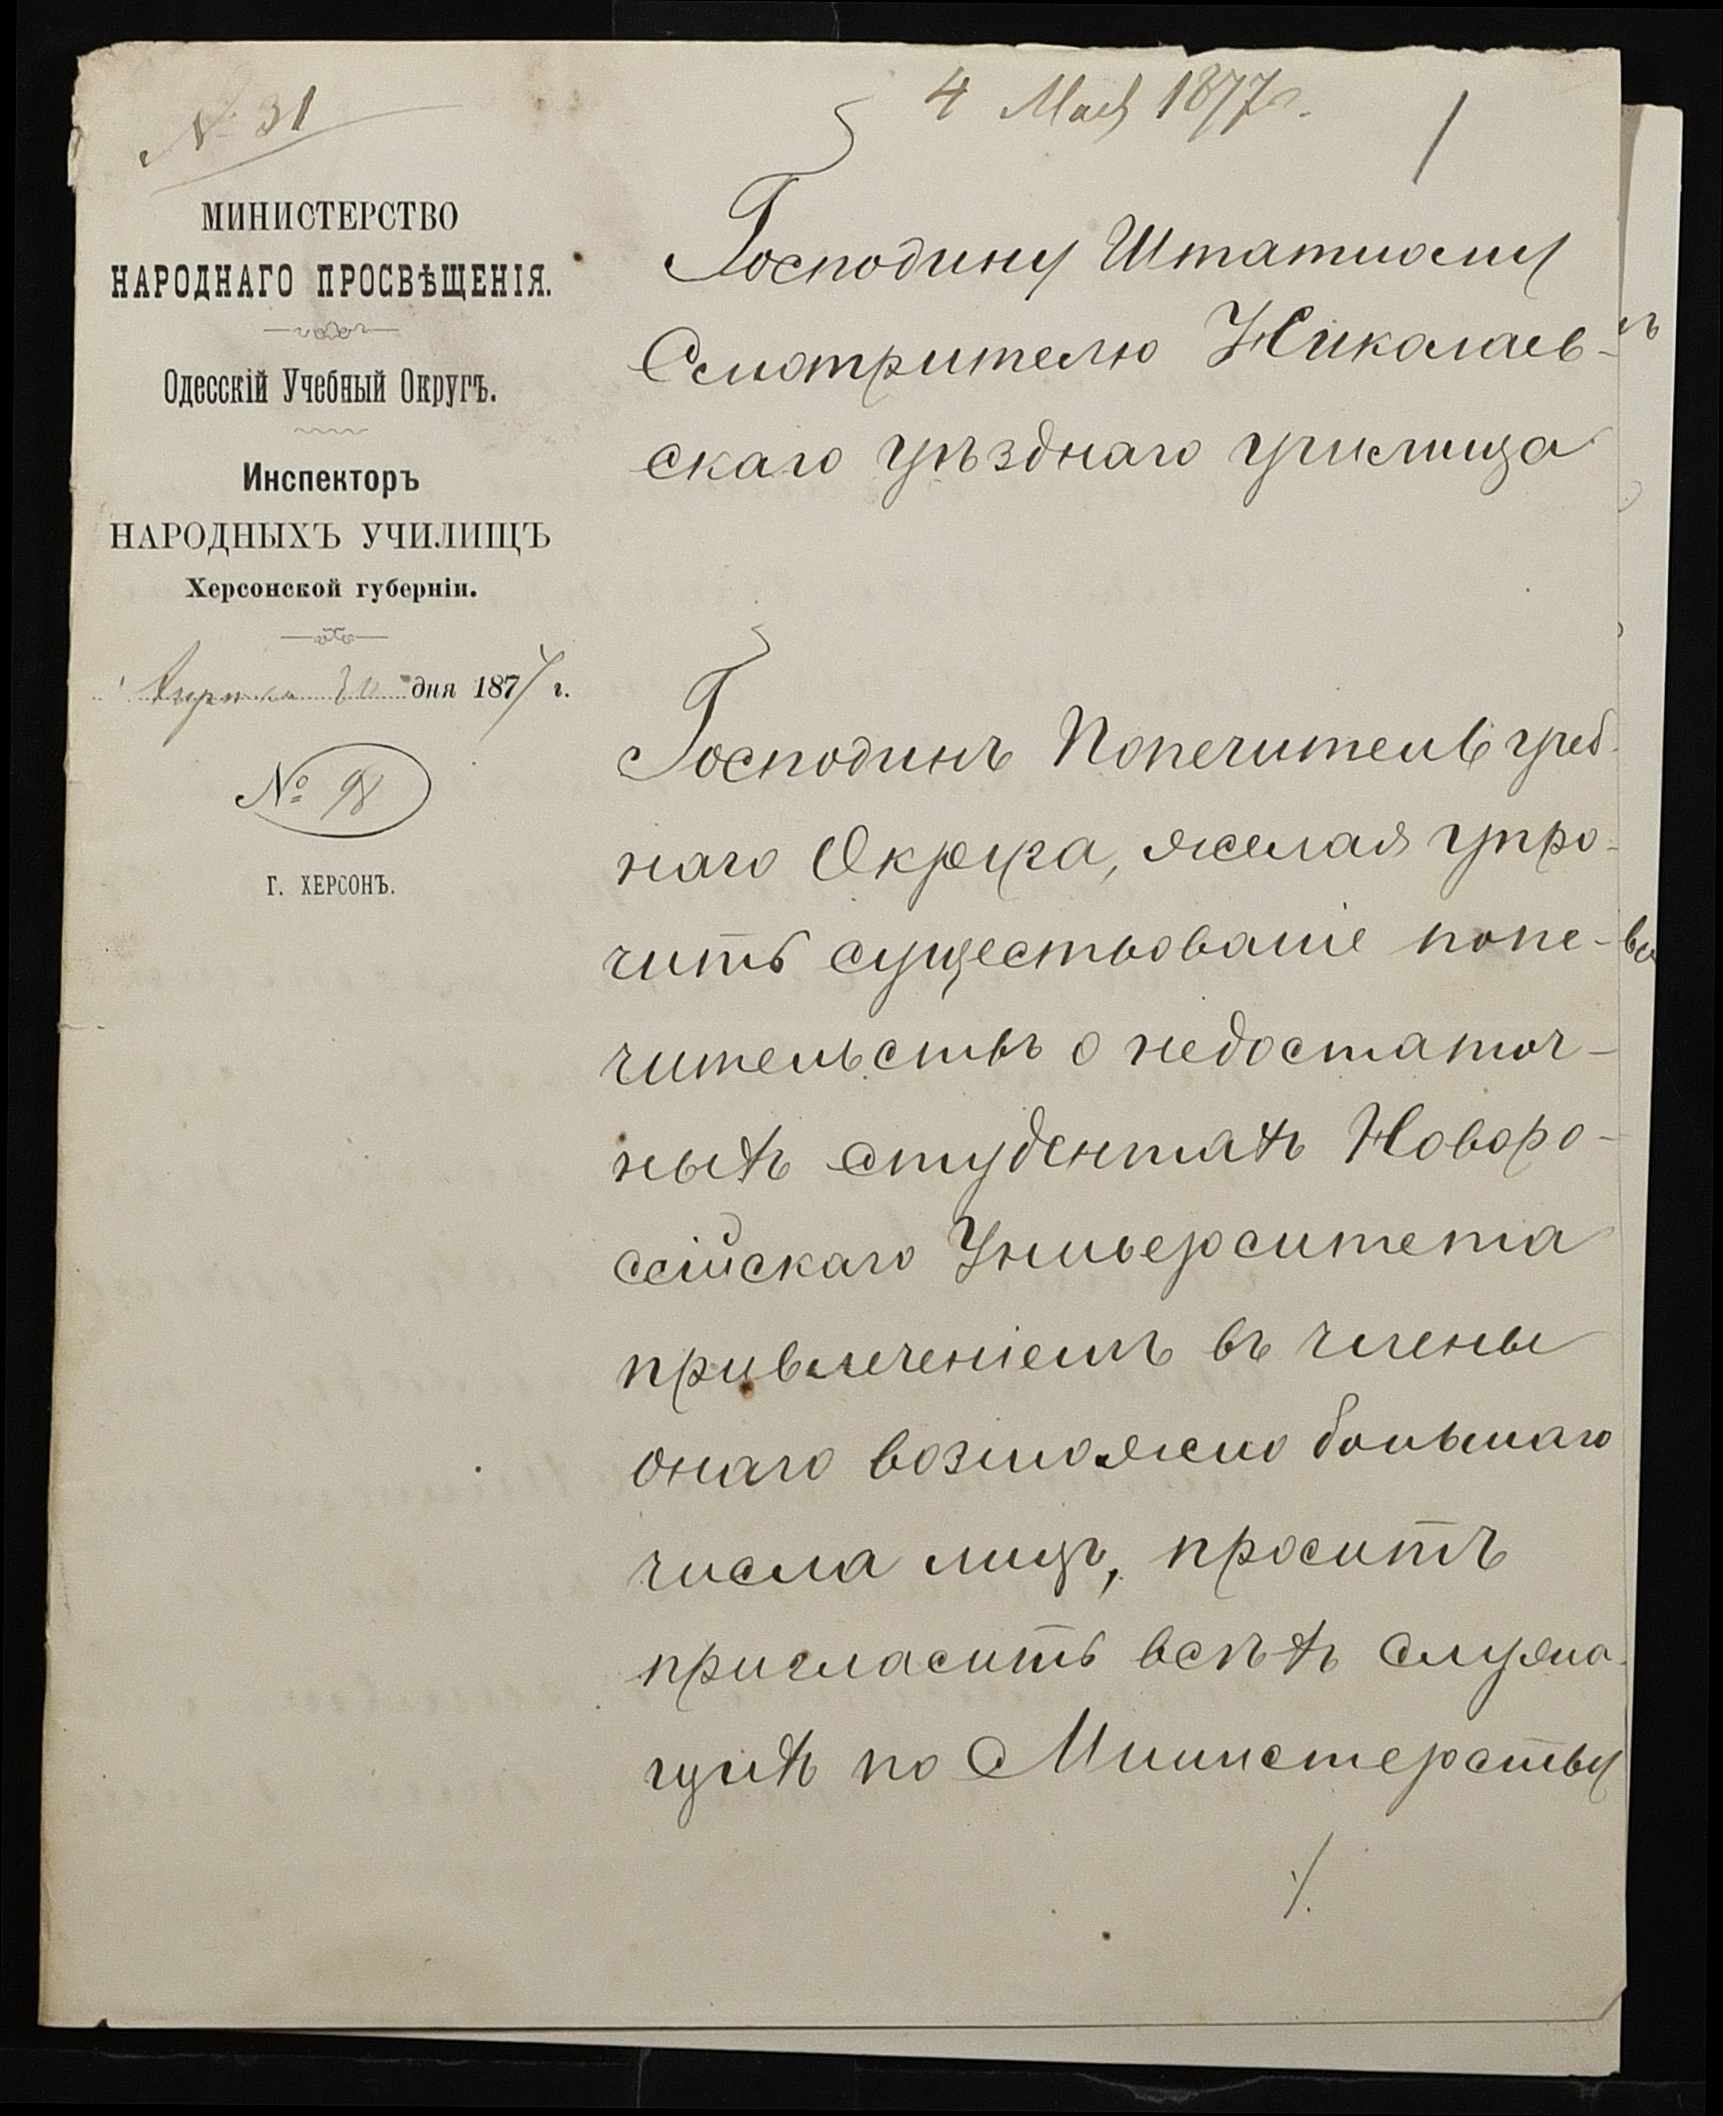 № 31
4 Мая 1877 г.
1
МИНИСТЕРСТВО
НАРОДНАГО ПРОСВѢЩЕНІЯ.
Одесскій Учебный Округъ.
Инспекторъ
НАРОДНЫХЪ УЧИЛИЩЪ
Херсонской губерніи.
Апрѣля 30 дня 1877 г.
№ 98
Г. ХЕРСОНЪ.
Господину Штатному
Смотрителю Николаев-
скаго уѣзднаго училища
Господинъ Попечитель учеб-
наго Округа, желая упро-
чить существованіе попе-
чительствъ о недостаточ-
ныхъ студентахъ Новоро-
сійскаго Университета
привлеченіемъ въ члены
онаго возможно большаго
числа лицъ, проситъ
пригласить всѣхъ служа-
щихъ по Министерству
./.